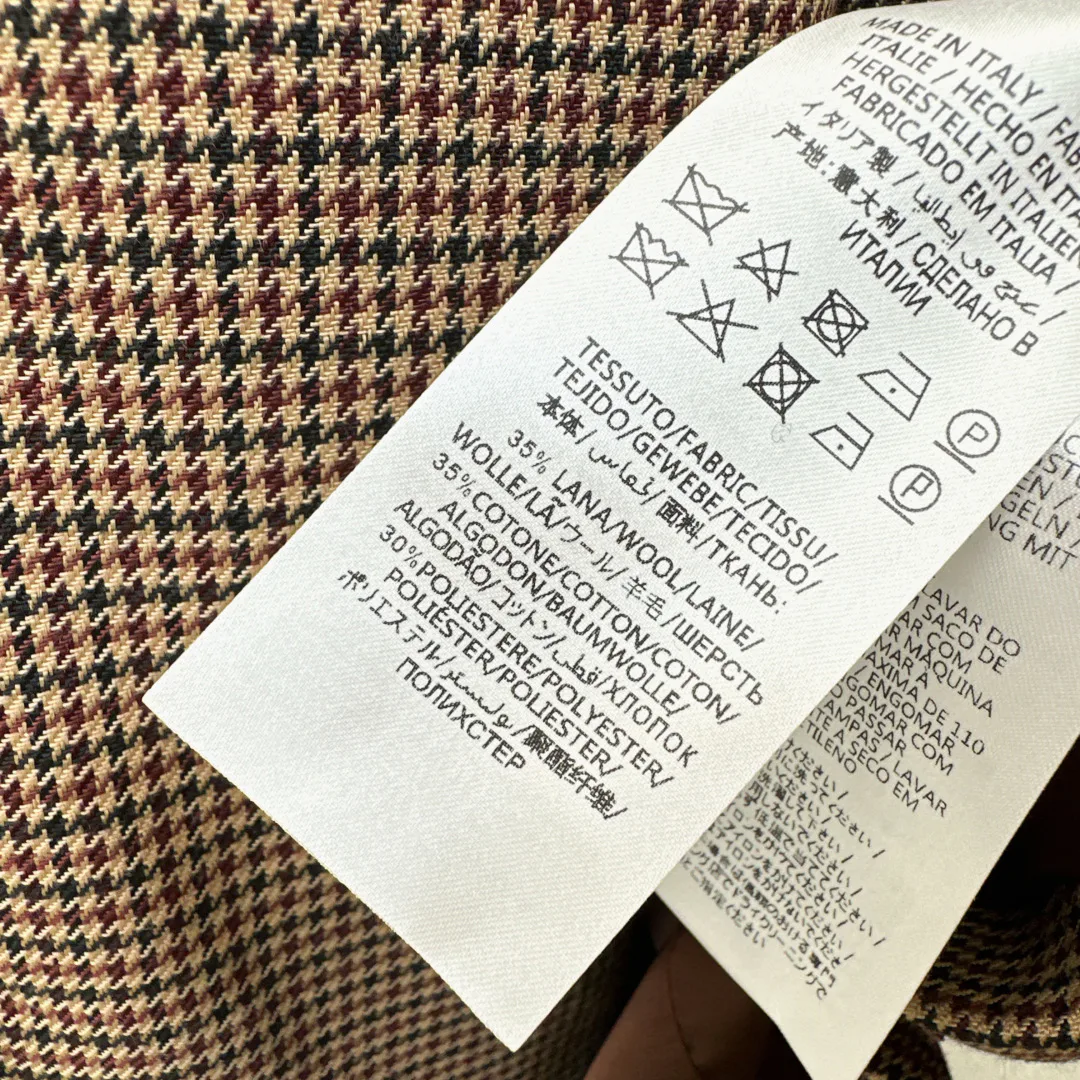 MADE IN ITALY / FAB
ITALIE / HECHO EN ITA
HERGESTELLT IN ITALIEN
FABRICADO EM ITALIA /
イタリア製 / صنع في إيطاليا /
产地: 意大利 / СДЕЛАНО В
ИТАЛИИ
P
P
TESSUTO/FABRIC/TISSU/
TEJIDO/GEWEBE/TECIDO/
本体/قماس/面料/ТКАНЬ:
35% LANA/WOOL/LAINE/
WOLLE/LÃ/ウール/羊毛/ШЕРСТЬ
35%COTONE/COTTON/COTON/
ALGODON/BAUMWOLLE/
ALGODÃO/コットン/قطن/ХЛОПОК
30%POLIESTERE/POLYESTER/
POLIÉSTER/POLIESTER/
ポリエステル/بوليستر/聚酯纤维/
ПОЛИХСТЕР
EN /
GELN /
NG MIT
LAVAR DO
M SACO DE
AR COM
MAR A
MÁQUINA
ÁXIMA
DE 110
GO ENGOMAR
O PASSAR COM
TAMPAS / LAVAR
TE A SECO EM
TILENO
けてください /
に洗ってください /
洗いください
用しないでください /